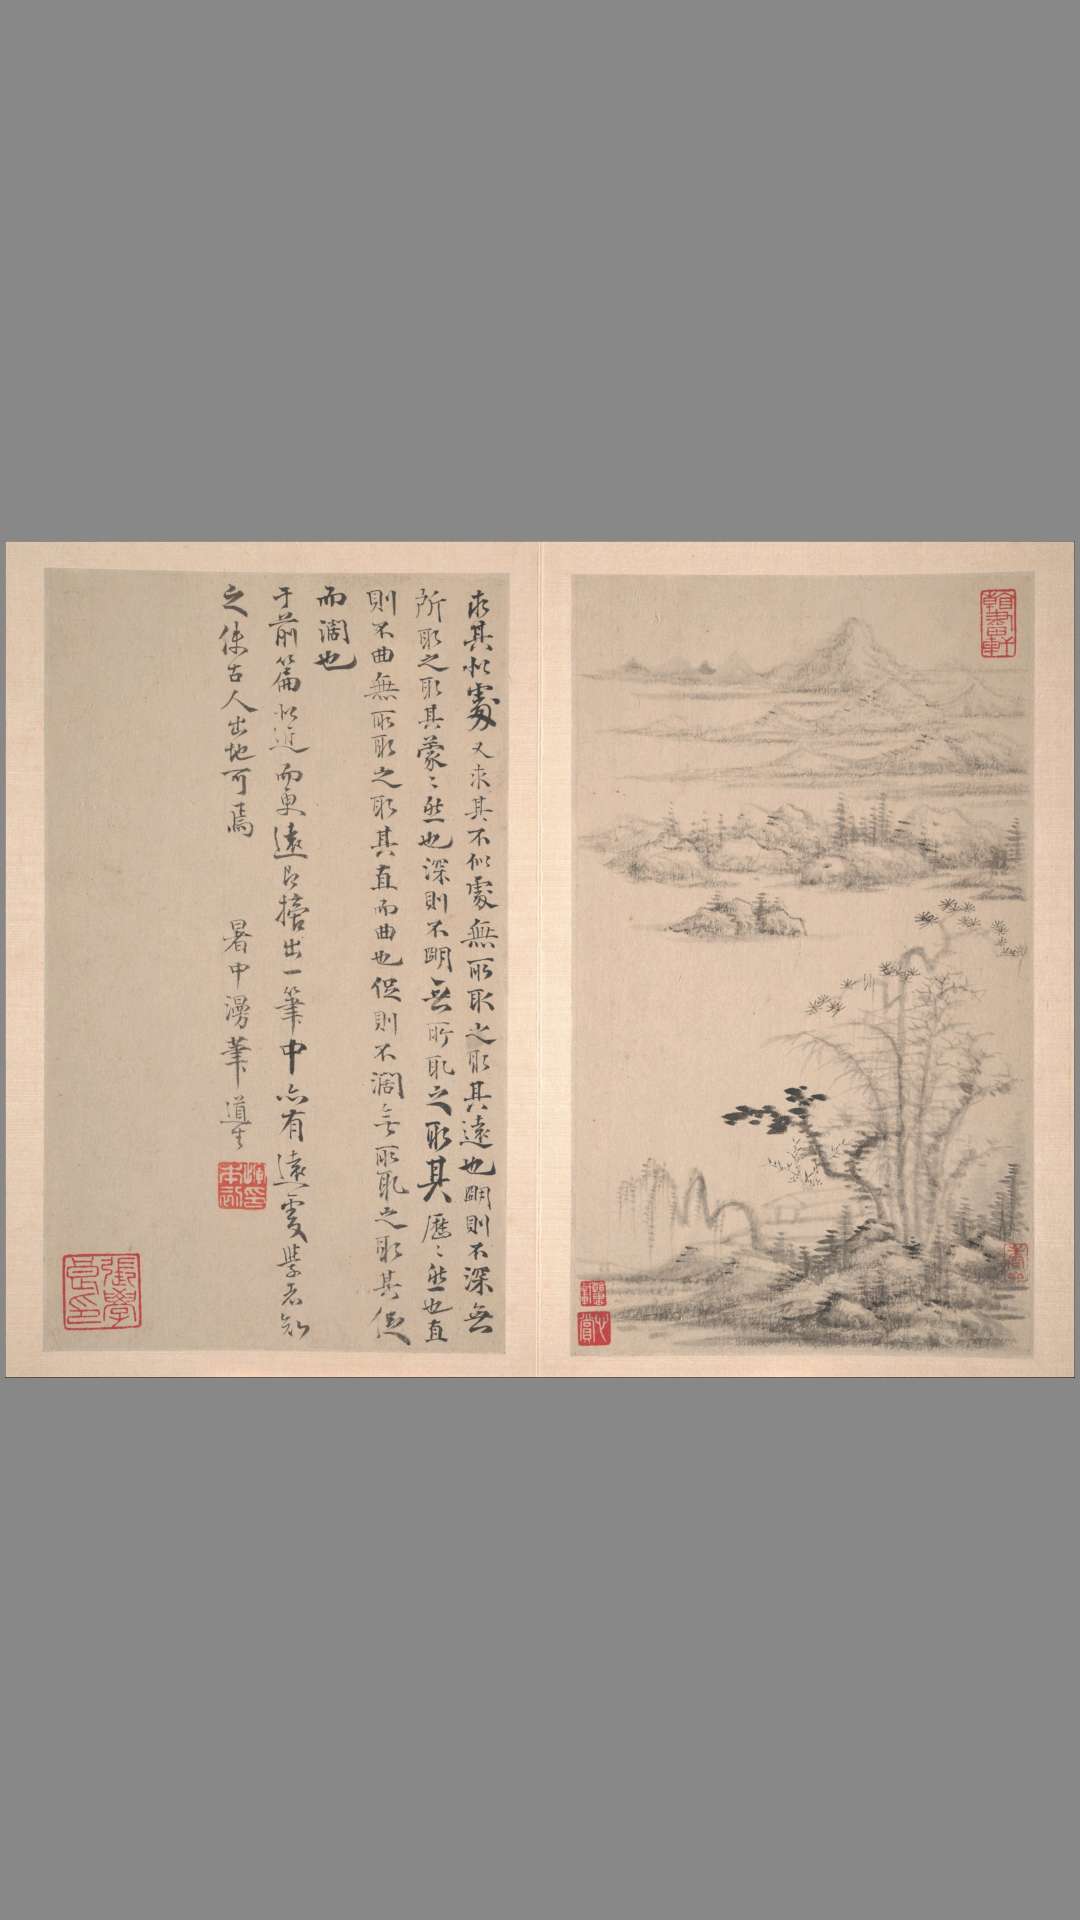 求其似處又求其不似處無所取之取其遠也明則不深無
所取之取其蒙〻然也深則不明無所取之取其歷〻然也直
則不曲無所取之取其直而曲也促則不濶無所取之取其促
而濶也
于前篇似近而更遠只擔出一筆中亦有遠處學者知
之使古人出地可焉
暑中漫筆 道生
張學良印